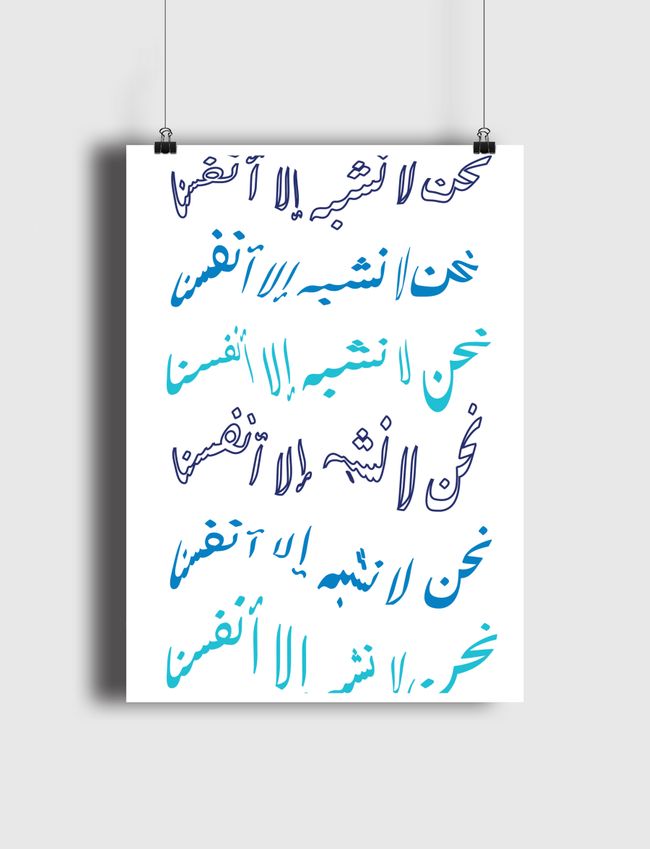 نحن لا نشبه إلا أنفسنا
نحن لا نشبه إلا أنفسنا
نحن لا نشبه إلا أنفسنا
نحن لا نشبه إلا أنفسنا
نحن لا نشبه إلا أنفسنا
نحن لا نشبه إلا أنفسنا